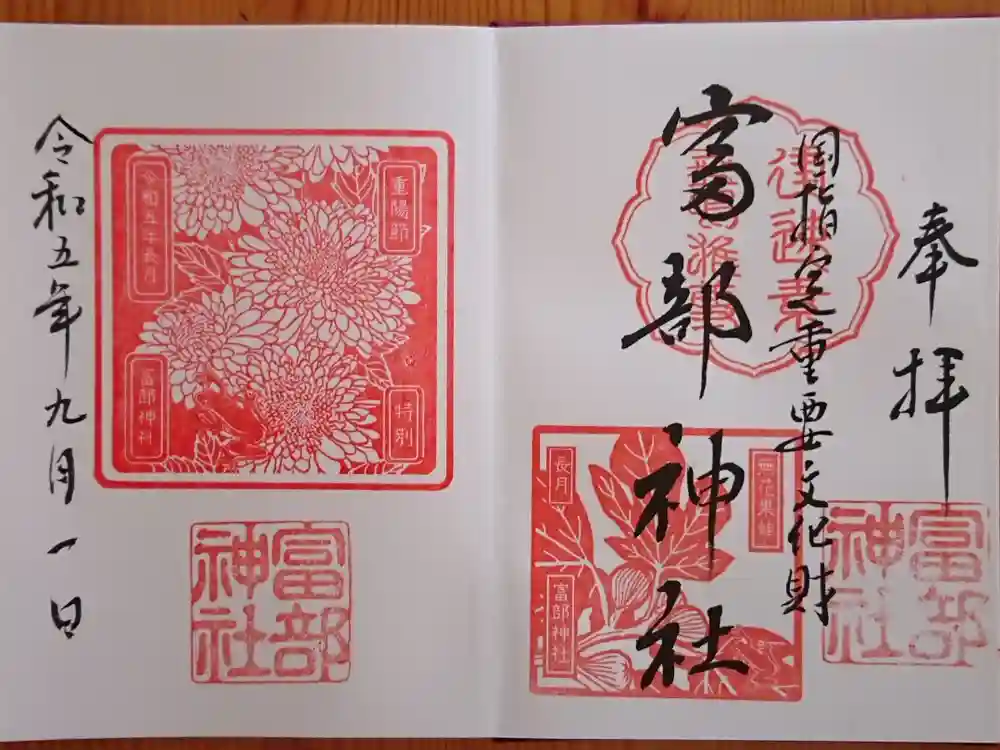 奉拝
国指定重要文化財
富部神社
富部神社
長月
富部神社
重陽節
特別
令和五年長月
富部神社
富部神社
令和五年九月一日